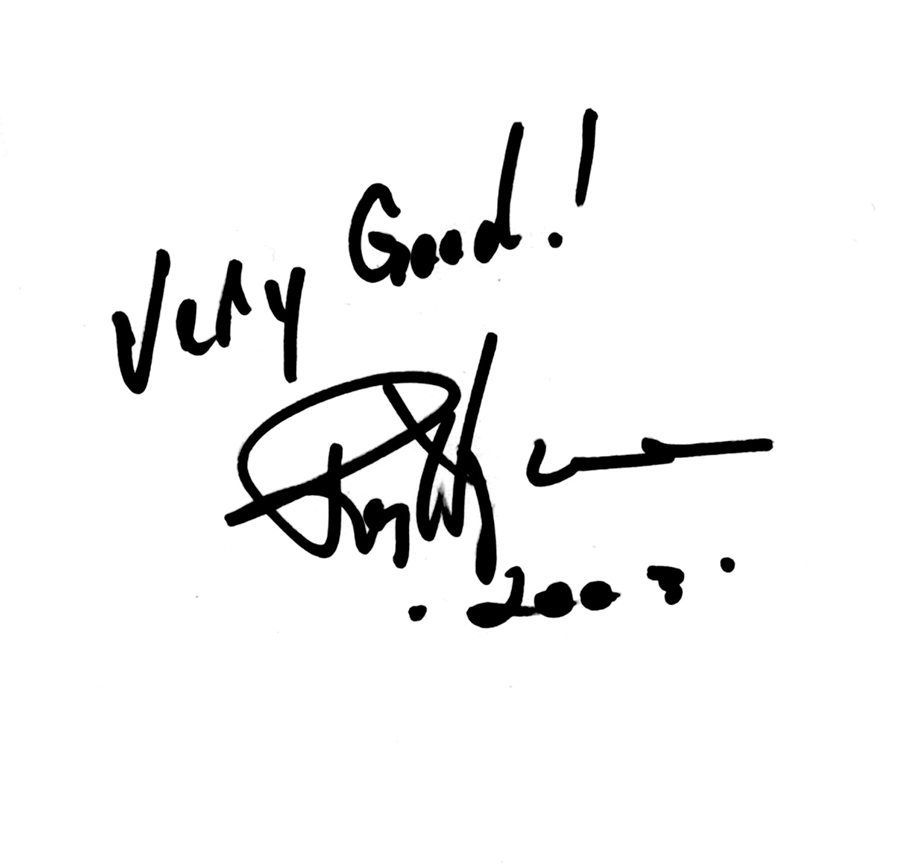 Very Good!
. 2003 .